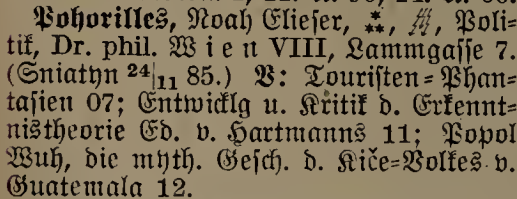 Pohorilles, Noah Elieser, ⁂, Poli=
tik, Dr. phil. Wien VIII, Lammgasse 7.
(Sniatyn 24/11 85.) V: Touristen=Phan=
tasien 07; Entwicklg u. Kritik d. Erkennt=
nistheorie Ed. v. Hartmanns 11; Popol
Wuh, die myth. Gesch. d. Kiče=Volkes v.
Guatemala 12.